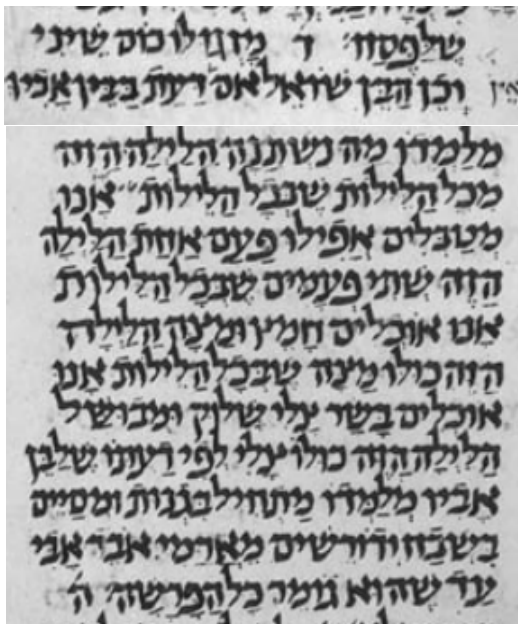 שלפסח׳ ד מזגו לו כוס שיני
וכן הבן שואל אם דעת בבין אביו
מלמדו מה נשתנה הלילה הזה
מכל הלילות שבכל הלילות אנו
מטבלים אפילו פעם אחת הלילה
הזה שתי פעמים שבכל הלילות
אנו אוכלים חמץ ומצה הלילה
הזה כולו מצה שבכל הלילות אנו
אוכלים בשר צלי שלוק ומבושל
הלילה הזה כולו צלי לפי דעתו שלבן
אביו מלמדו מתחיל בגנות ומסיים
בשבח ודורשים מארמי אבד אבי
עד שהוא גומר כל הפרשה׳ ה׳